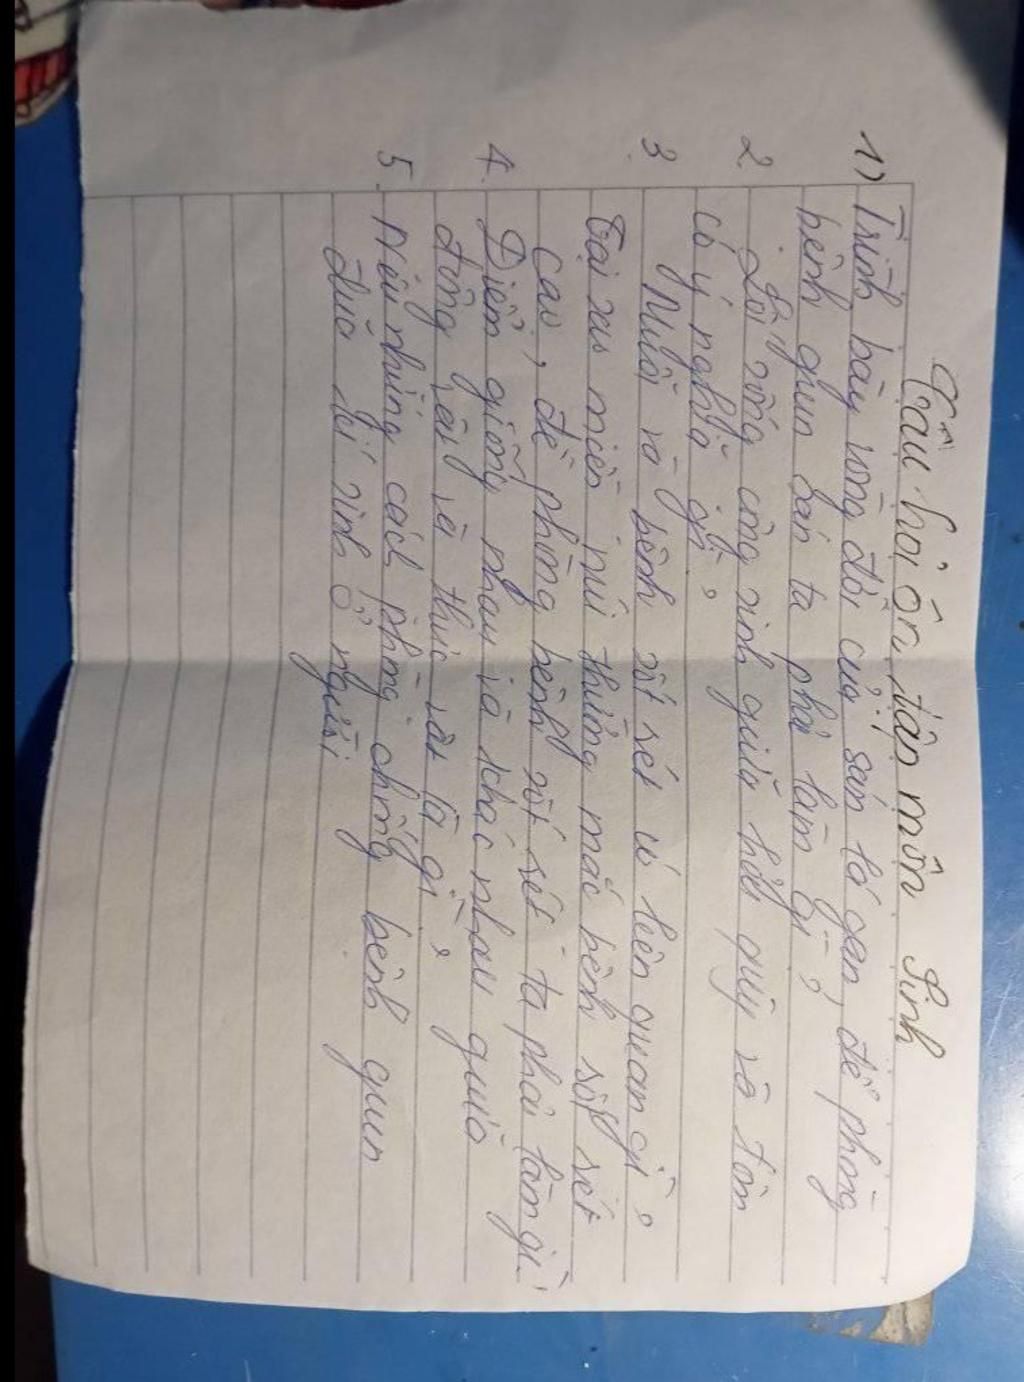 Câu hỏi ôn tập môn Sinh
1) Trình bày vòng đời của sán lá gan, để phòng
bệnh giun bán ta phải làm gì?
2. Lối sống cộng sinh giữa hải quỳ và tôm
có ý nghĩa gì?
3. Muỗi và bệnh sốt sét có liên quan gì?
Tại sao miền núi thường mắc bệnh sốt sét
cao, để phòng bệnh sốt sét ta phải làm gì
4. Điểm giống nhau và khác nhau giữa
động vật và thực vật là gì?
5. Nêu những cách phòng chống bệnh giun
đũa kí sinh ở người